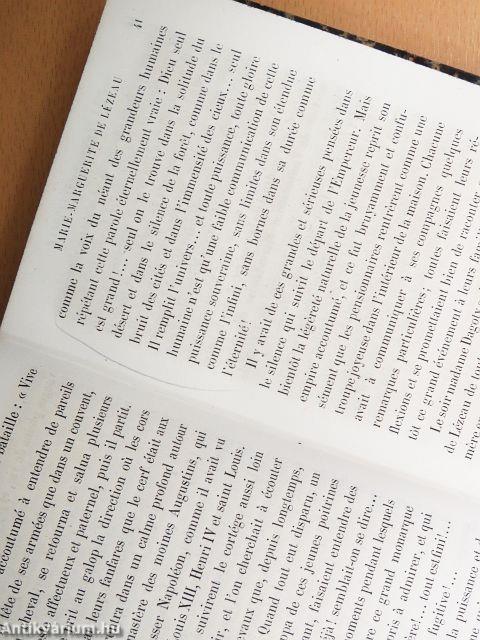 bataille : « Vive
accoutumé à entendre de pareils
tête de ses armées que dans un couvent,
cheval, se retourna et salua plusieurs
affectueux et paternel, puis il partit.
it au galop la direction où les cors
leurs fanfares que le cerf était aux
ra dans un calme profond autour
astère des moines Augustins, qui
sser Napoléon, comme il avait vu
ouis XIII, Henri IV et saint Louis.
suivirent le cortége aussi loin
, et l'on cherchait à écouter
vaux que, depuis longtemps,
Quand tout eut disparu, un
pa de ces jeunes poitrines
faisaient entendre des
jà! semblait-on se dire...
ments pendant lesquels
ce grand monarque
is à admirer, et qui
... tout est fini!...
fugitive!...
uissance et d
MARIE-MARGUERITE DE LÉZEAU 41
comme la voix du néant des grandeurs humaines
répétant cette parole éternellement vraie : Dieu seul
est grand!... seul on le trouve dans la solitude du
désert et dans le silence de la forêt, comme dans le
bruit des cités et dans l'immensité des cieux... seul
Il remplit l'univers... et toute puissance, toute gloire
humaine n'est qu'une faible communication de cette
puissance souveraine, sans limites dans son étendue
comme l'infini, sans bornes dans sa durée comme
l'éternité!
Il y avait de ces grandes et sérieuses pensées dans
le silence qui suivit le départ de l'Empereur. Mais
bientôt la légèreté naturelle de la jeunesse reprit son
empire accoutumé, et ce fut bruyamment et confu-
sément que les pensionnaires rentrèrent comme une
troupe joyeuse dans l'intérieur de la maison. Chacune
avait à communiquer à ses compagnes quelques
remarques particulières; toutes faisaient leurs ré-
flexions et se promettaient bien de raconter
tôt ce grand événement à leurs fam
Le soir madame Dagay
de Lézeau de
mère
Antikvarium.hu